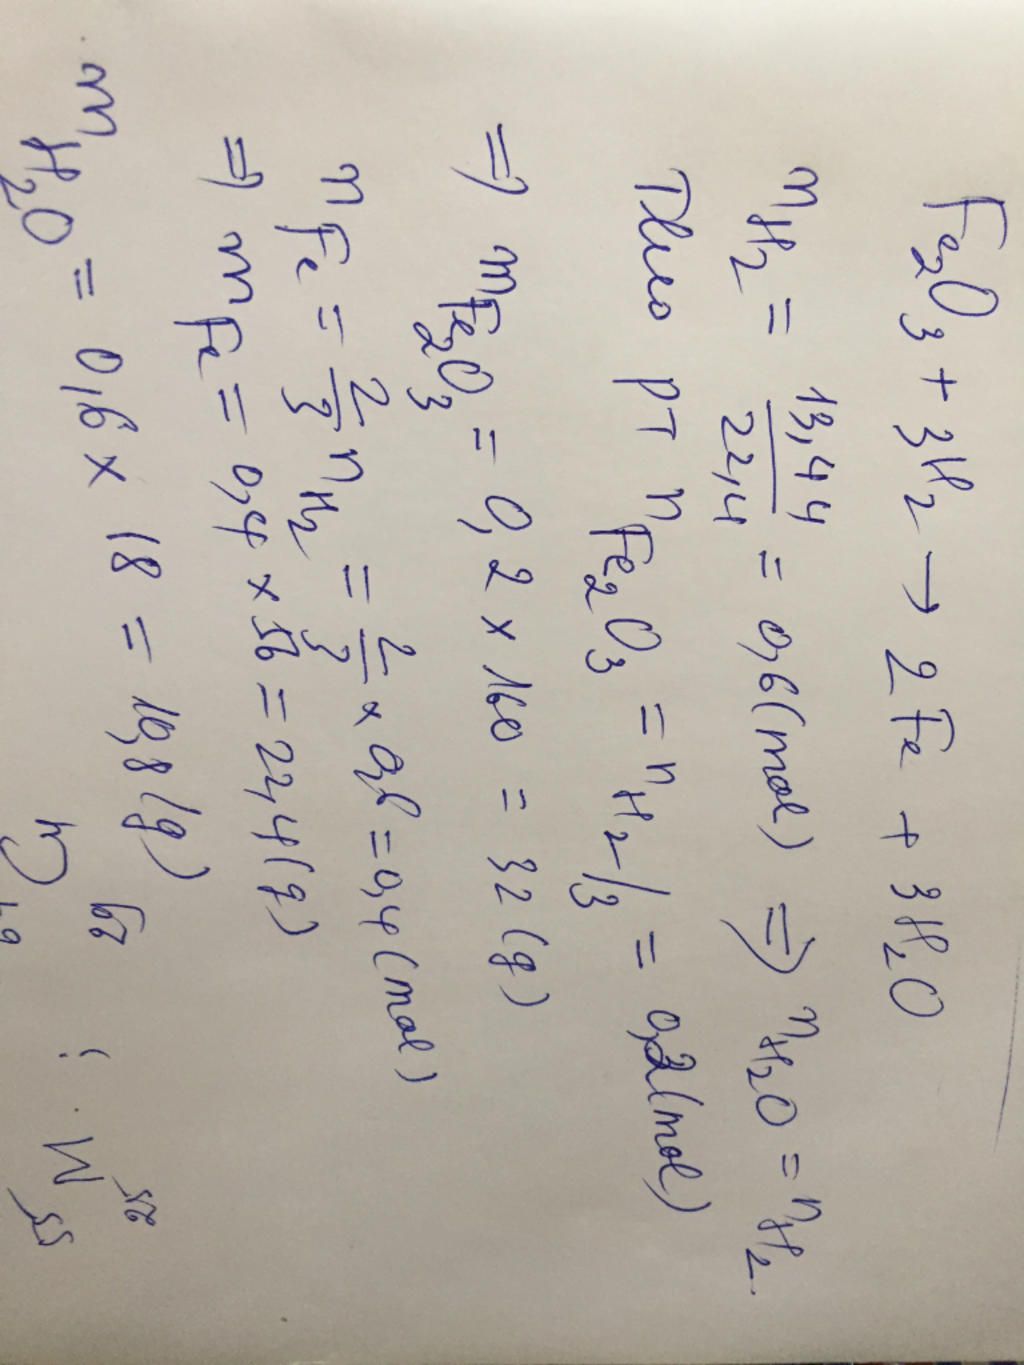 Fe₂O₃ + 3H₂ → 2Fe + 3H₂O
n_H₂ = 13,44/22,4 = 0,6(mol) ⇒ n_H₂O = n_H₂
Theo pt n_Fe₂O₃ = n_H₂/3 = 0,2(mol)
⇒ m_Fe₂O₃ = 0,2 x 160 = 32(g)
n_Fe = 2/3 n_H₂ = 2/3 x 0,6 = 0,4(mol)
⇒ m_Fe = 0,4 x 56 = 22,4(g)
m_H₂O = 0,6 x 18 = 10,8(g)